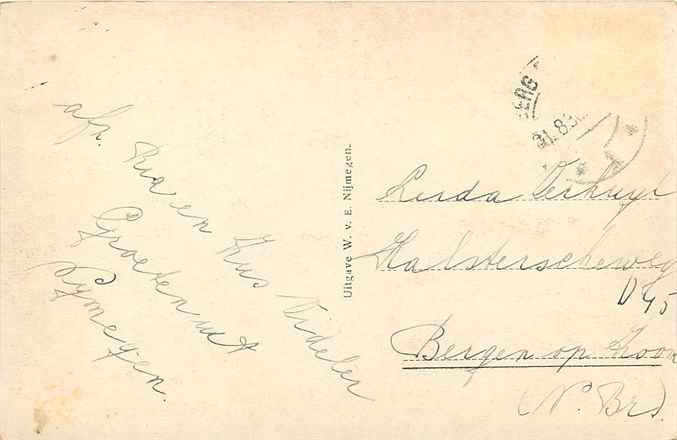 afz. Ria en Kus Fideler
Groeten uit
Nymegen.
Uitgave W. v. E. Nijmegen.
BERG
31.8.3
Gerda Verhuyt
Halsterscheweg
D 45
Bergen op Zoom
(N. Br.)